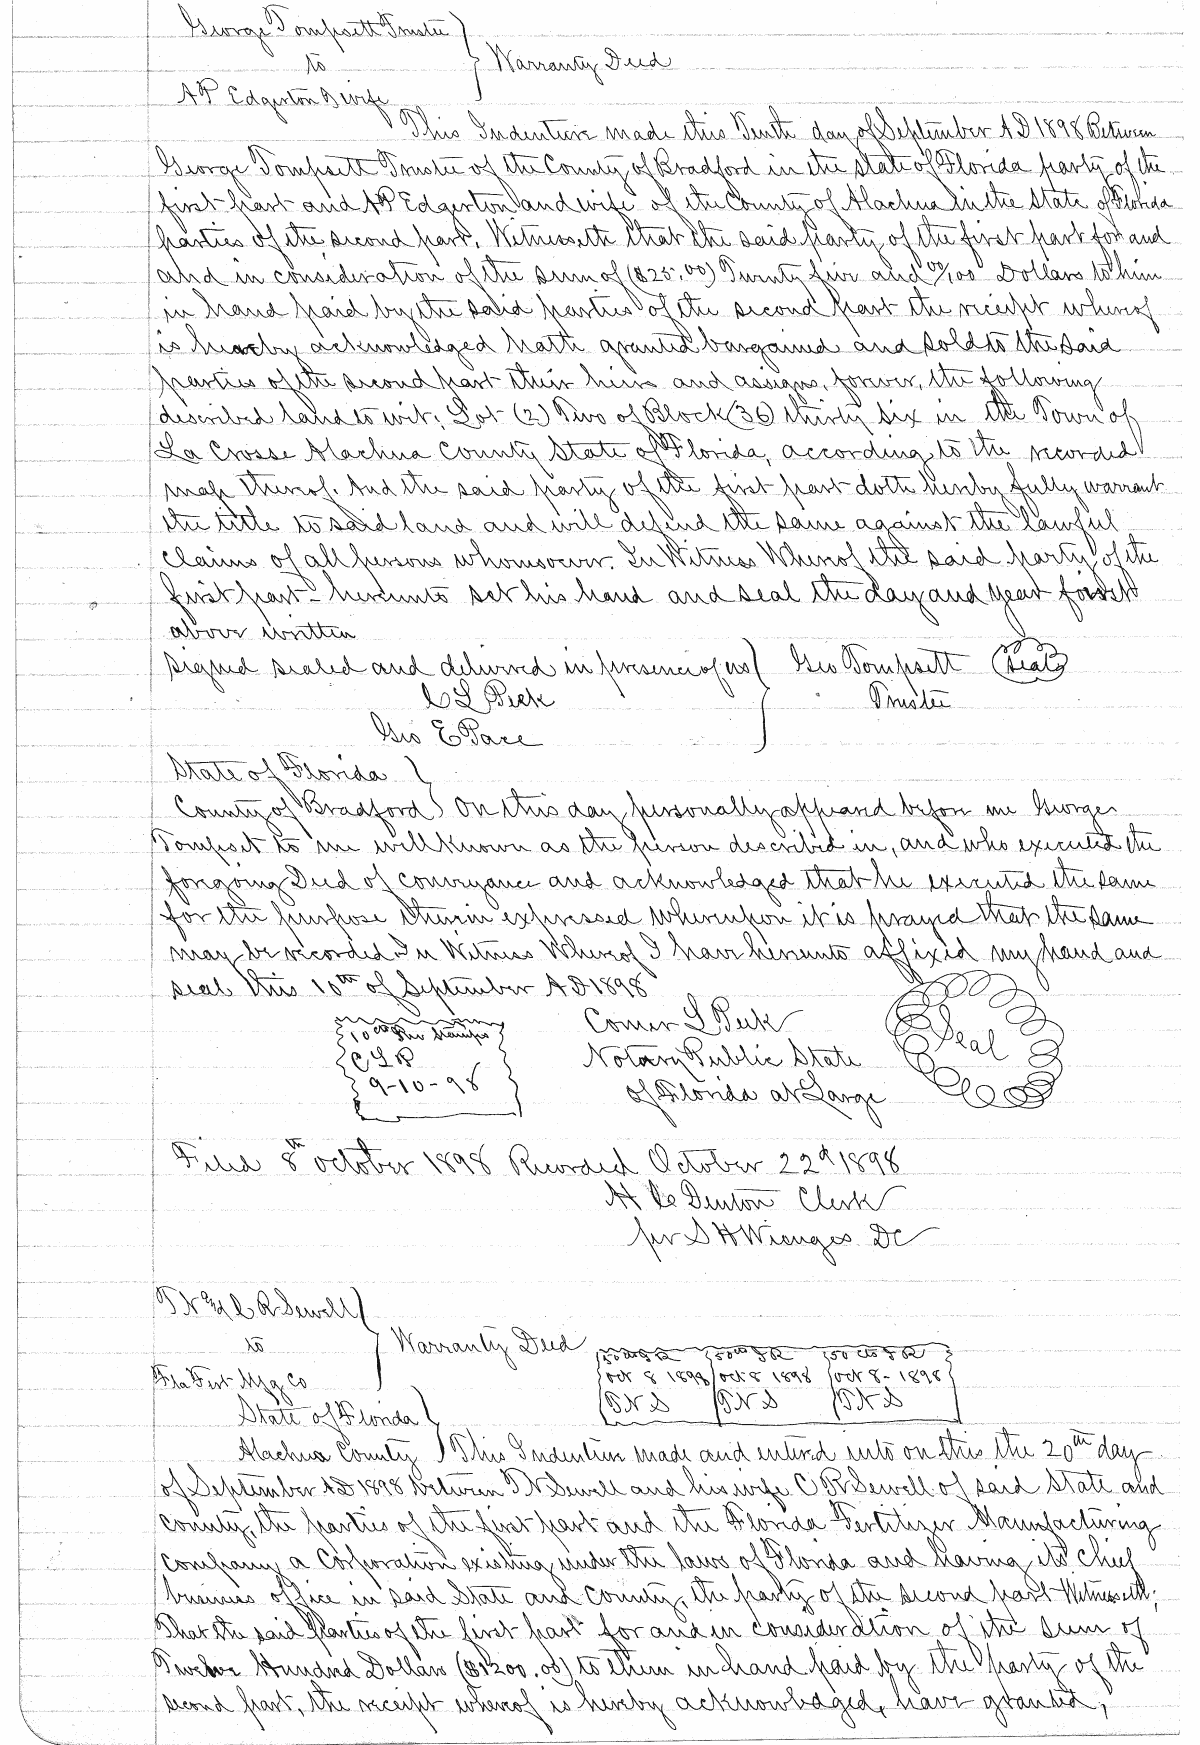 George Tompsett Trustee
to
Warranty Deed
A P Edgerton & wife
This Indenture made this Tenth day of September A D 1898 Between
George Tompsett Trustee of the County of Bradford in the State of Florida party of the
first part and A P Edgerton and wife of the County of Alachua in the State of Florida
parties of the second part, Witnesseth that the said party of the first part for and
and in consideration of the sum of ($25.00) Twenty five and 00/100 Dollars to him
in hand paid by the said parties of the second part the receipt whereof
is hereby acknowledged hath granted bargained and sold to the said
parties of the second part their heirs and assigns, forever, the following
described land to wit; Lot (2) Two of Block (36) thirty six in the Town of
La Crosse Alachua County State of Florida, according to the recorded
map thereof. And the said party of the first part doth hereby fully warrant
the title to said land and will defend the same against the lawful
claims of all persons whomsoever. In Witness Whereof the said party of the
first part hereunto set his hand and seal the day and year first
above written
signed sealed and delivered in presence of us Geo Tompsett (Seal)
C L Peek Trustee
Geo E Pace
State of Florida
County of Bradford On this day personally appeared before me George
Tompset to me well known as the person described in, and who executed the
foregoing Deed of conveyance and acknowledged that he executed the same
for the purpose therein expressed whereupon it is prayed that the same
may be recorded. In Witness Whereof I have hereunto affixed my hand and
seal this 10th of September A D 1898
10 cts Rev Stamps
C L P
9-10-98
Comer L Peek
Notary Public State
of Florida at Large
Seal
Filed 8th October 1898 Recorded October 22d 1898
H C Denton Clerk
per S H Wienges DC
T N and C R Sewell
to
Warranty Deed
Fla Fert Mfg Co
50 cts I R 50 cts I R 50 cts I R
Oct 8 1898 Oct 8 1898 Oct 8 - 1898
T N S T N S T N S
State of Florida
Alachua County This Indenture made and entered into on this the 20th day
of September A D 1898 between T N Sewell and his wife C R Sewell of said State and
County, the parties of the first part and the Florida Fertilizer Manufacturing
Company a Corporation existing under the laws of Florida and having its chief
business office in said State and County, the party of the second part Witnesseth;
That the said Parties of the first part for and in consideration of the sum of
Twelve Hundred Dollars ($1200.00) to them in hand paid by the party of the
second part, the receipt whereof is hereby acknowledged, have granted,